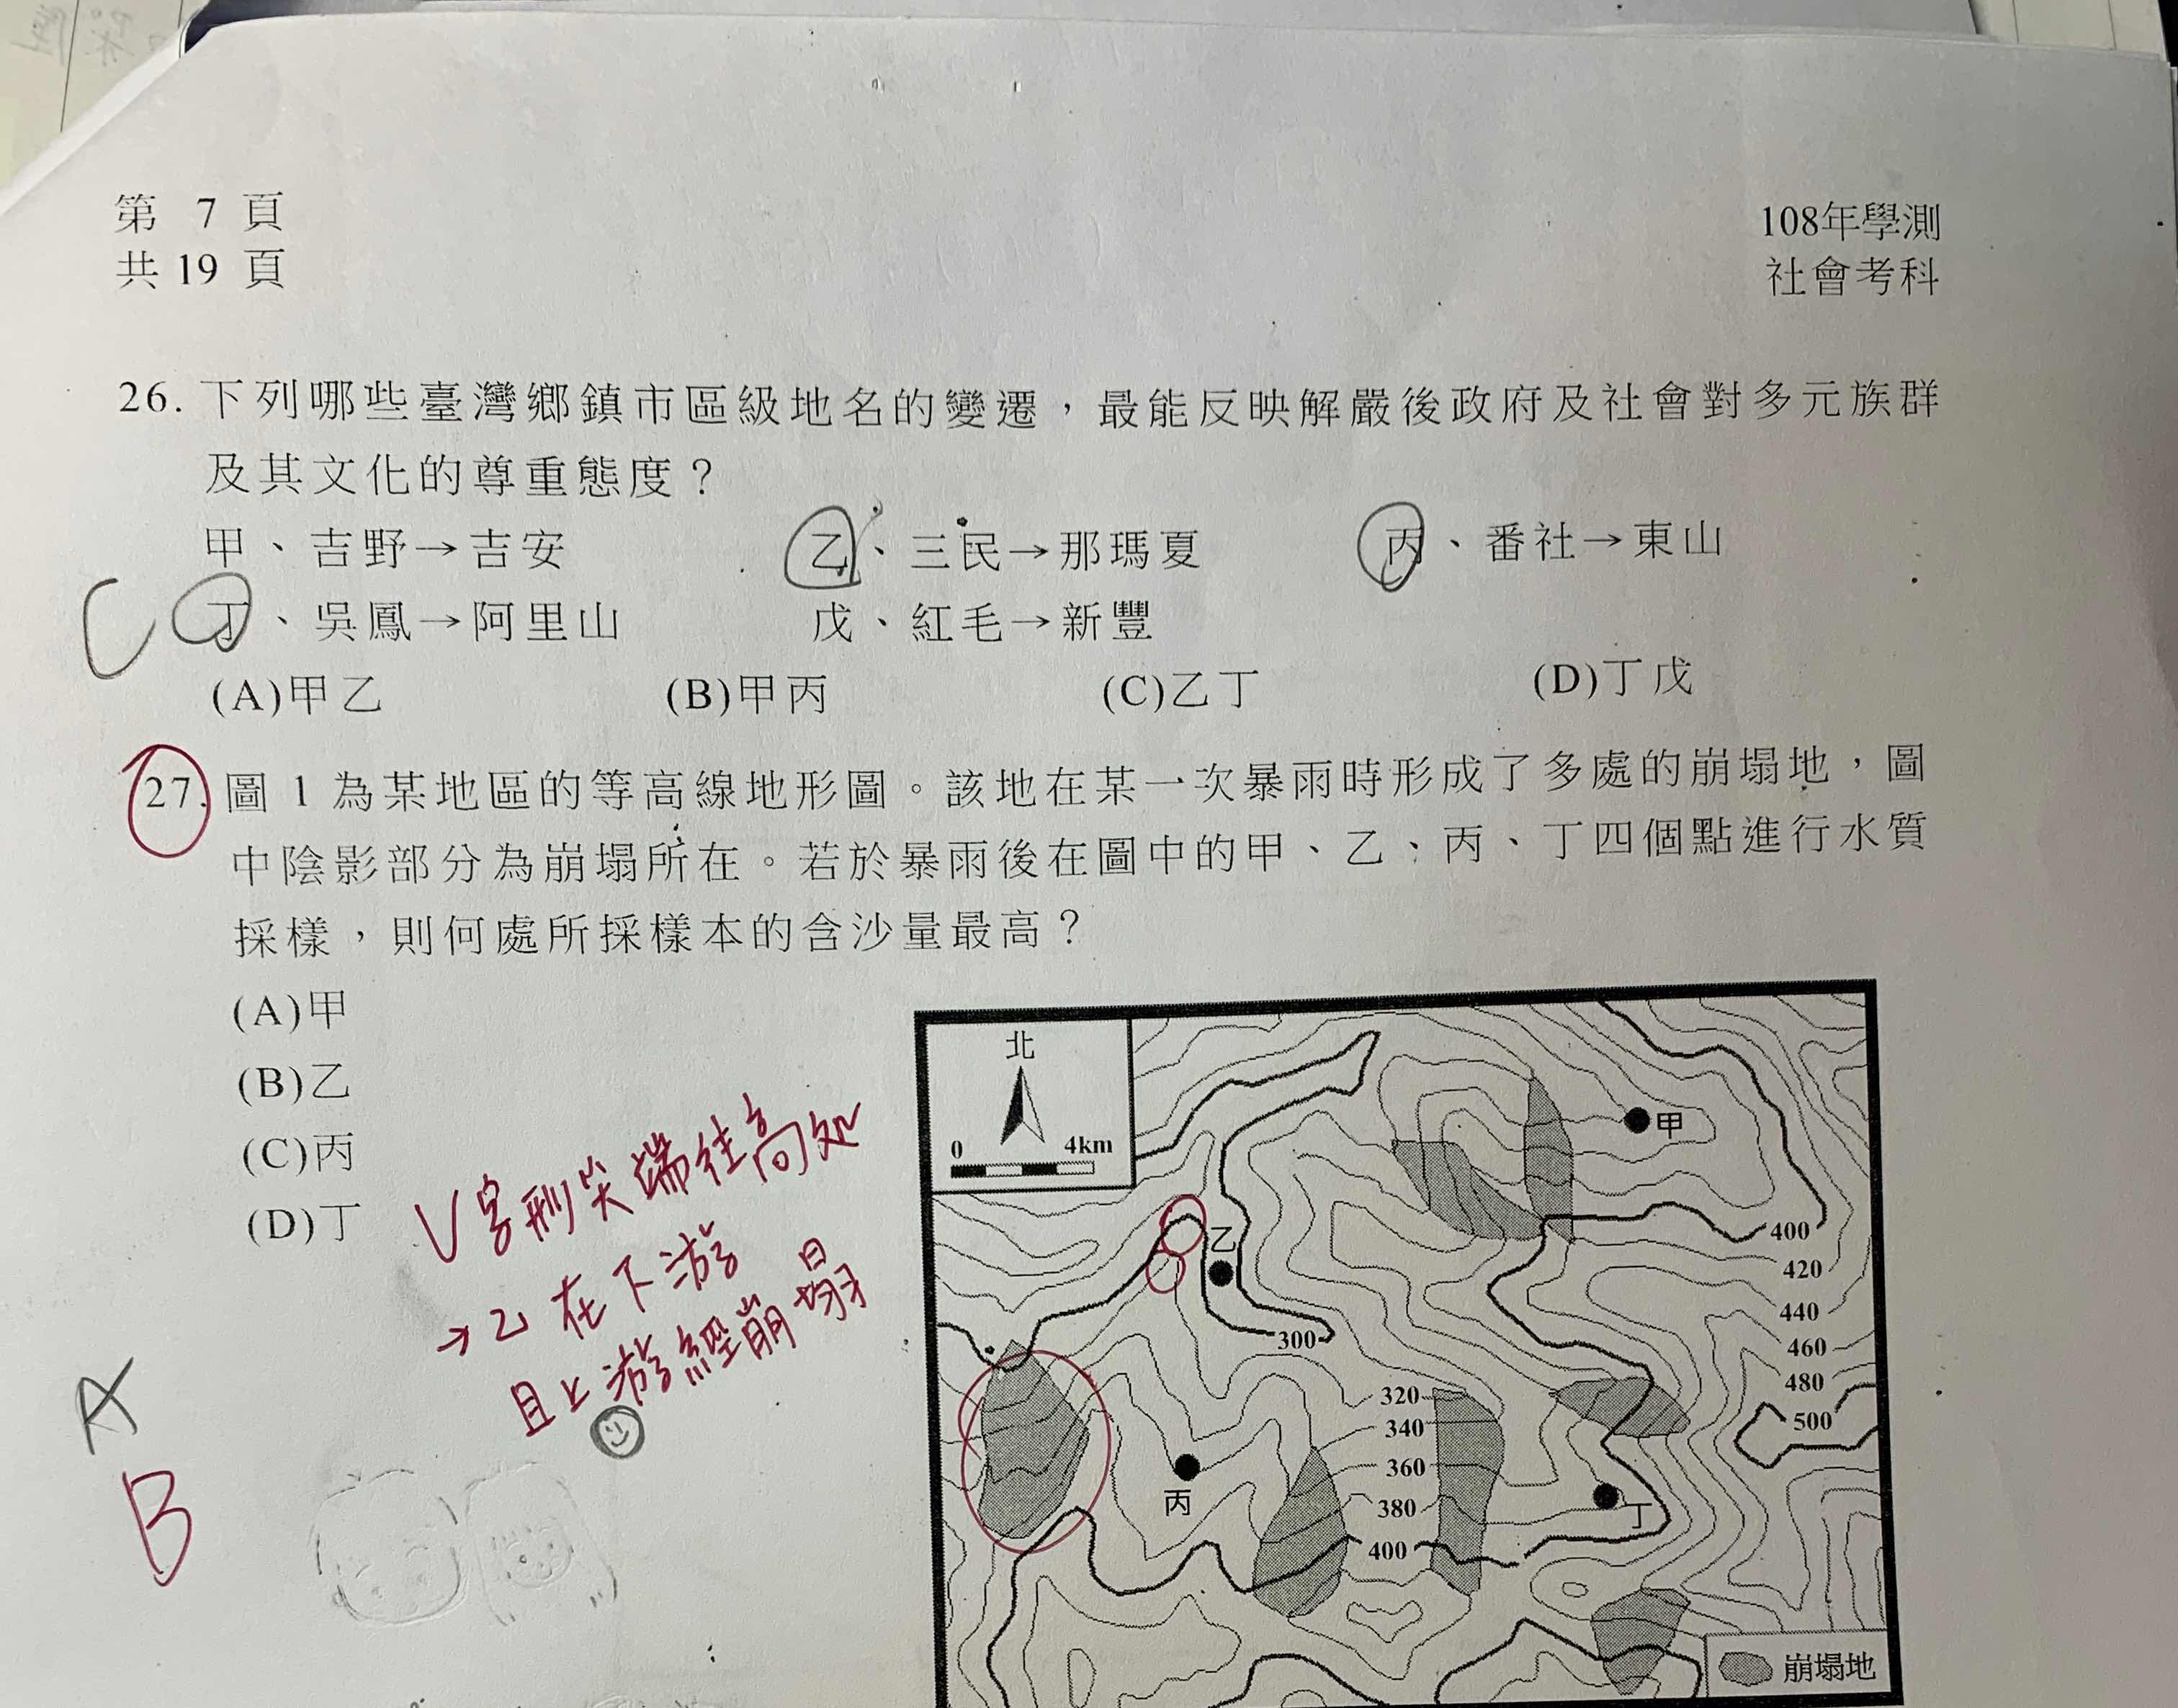 第 7 頁
共 19 頁
108年學測
社會考科
26. 下列哪些臺灣鄉鎮市區級地名的變遷，最能反映解嚴後政府及社會對多元族群
及其文化的尊重態度？
甲、吉野→吉安 乙、三民→那瑪夏 丙、番社→東山
丁、吳鳳→阿里山 戊、紅毛→新豐
C
(A)甲乙 (B)甲丙 (C)乙丁 (D)丁戊
27. 圖 1 為某地區的等高線地形圖。該地在某一次暴雨時形成了多處的崩塌地，圖
中陰影部分為崩塌所在。若於暴雨後在圖中的甲、乙、丙、丁四個點進行水質
採樣，則何處所採樣本的含沙量最高？
(A)甲
(B)乙
(C)丙
(D)丁
V字形尖端往高处
→乙在下游
且上游經崩塌
A
B
北
0 4km
甲
乙
400
420
440
460
480
500
300
320
340
360
380
400
丙
丁
崩塌地